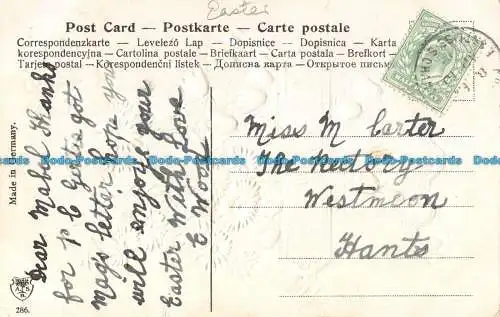 Easter
Post Card — Postkarte — Carte postale
Correspondenzkarte — Levelező Lap — Dopisnice — Dopisnica — Karta
korespondencyjna — Cartolina postale — Briefkaart — Carta postala — Brefkort
Tarjeta postal — Korespondenční lístek — Дописна карта — Открытое письмо
Dear Mabel Thanks
for p c Gertie got
Mags letter hope you
will enjoy your
Easter With Love
E Wood
Miss M Carter
The Rectory
Westmeon
Hants
Made in Germany.
286.
Dodo-Postcards